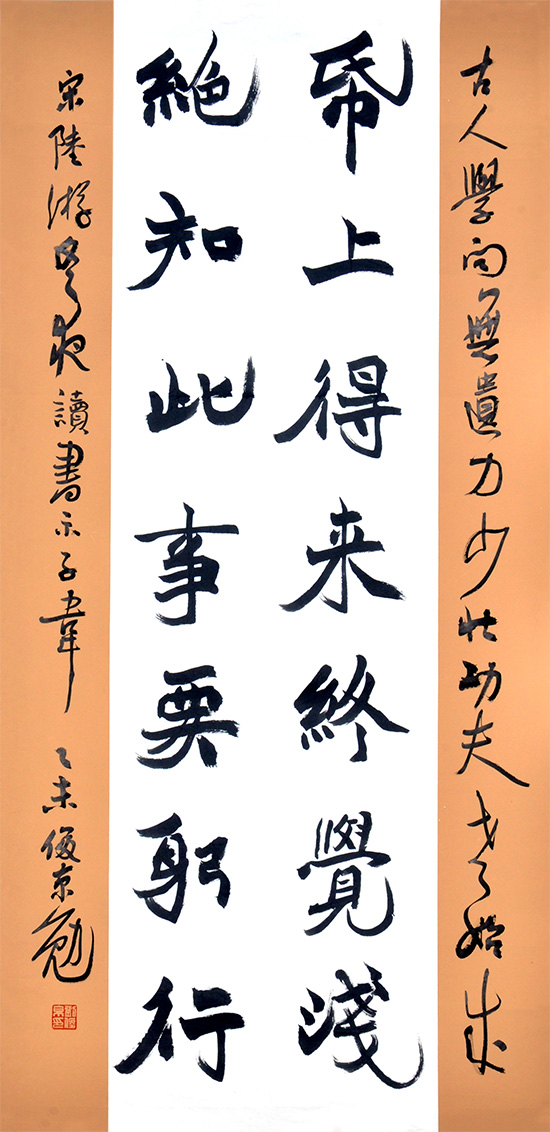 古人學問無遺力少壯功夫老始成
帋上得来終覺淺
絶知此事要躬行
宋陸游冬夜讀書示子聿 乙未俊京勉